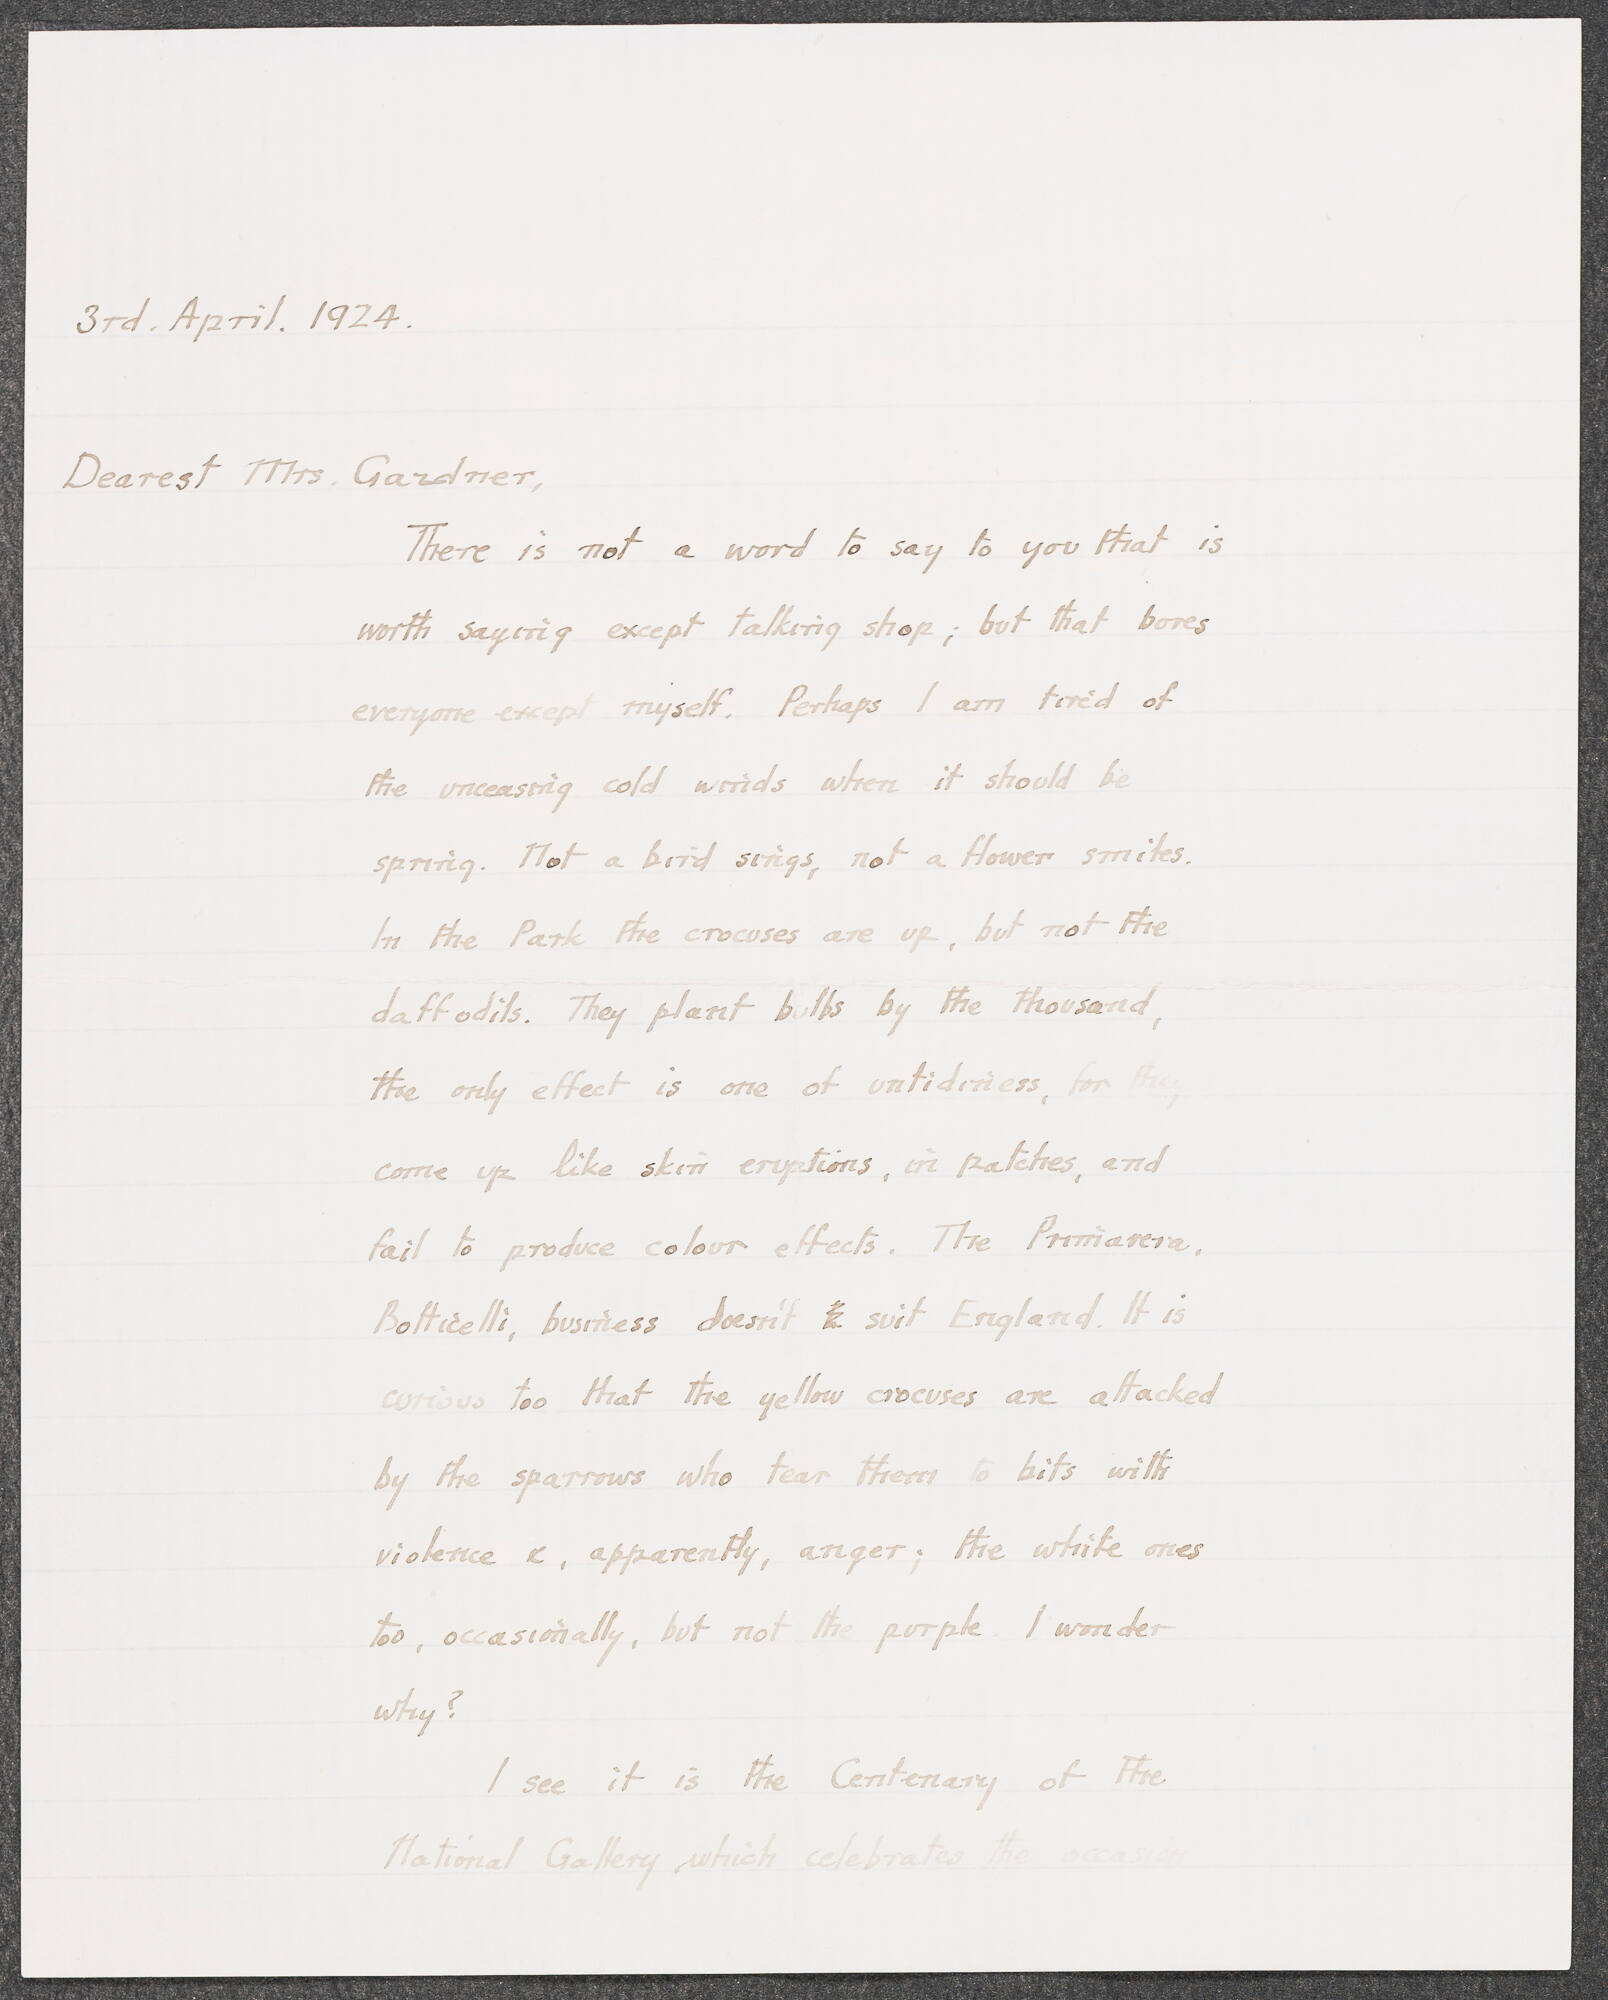 3rd. April. 1924.
Dearest Mrs. Gardner,
There is not a word to say to you that is
worth saying except talking shop; but that bores
everyone except myself. Perhaps I am tired of
the unceasing cold winds when it should be
spring. Not a bird sings, not a flower smiles.
In the Park the crocuses are up, but not the
daffodils. They plant bulbs by the thousand,
the only effect is one of untidiness, for they
come up like skin eruptions, in patches, and
fail to produce colour effects. The Primavera,
Botticelli, business doesn't suit England. It is
curious too that the yellow crocuses are attacked
by the sparrows who tear them to bits with
violence &, apparently, anger; the white ones
too, occasionally, but not the purple. I wonder
why?
I see it is the Centenary of the
National Gallery, which celebrates the occasion